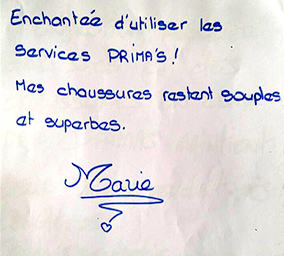 Enchantée d'utiliser les
services PRIMA'S!
Mes chaussures restent souples
et superbes.
Marie